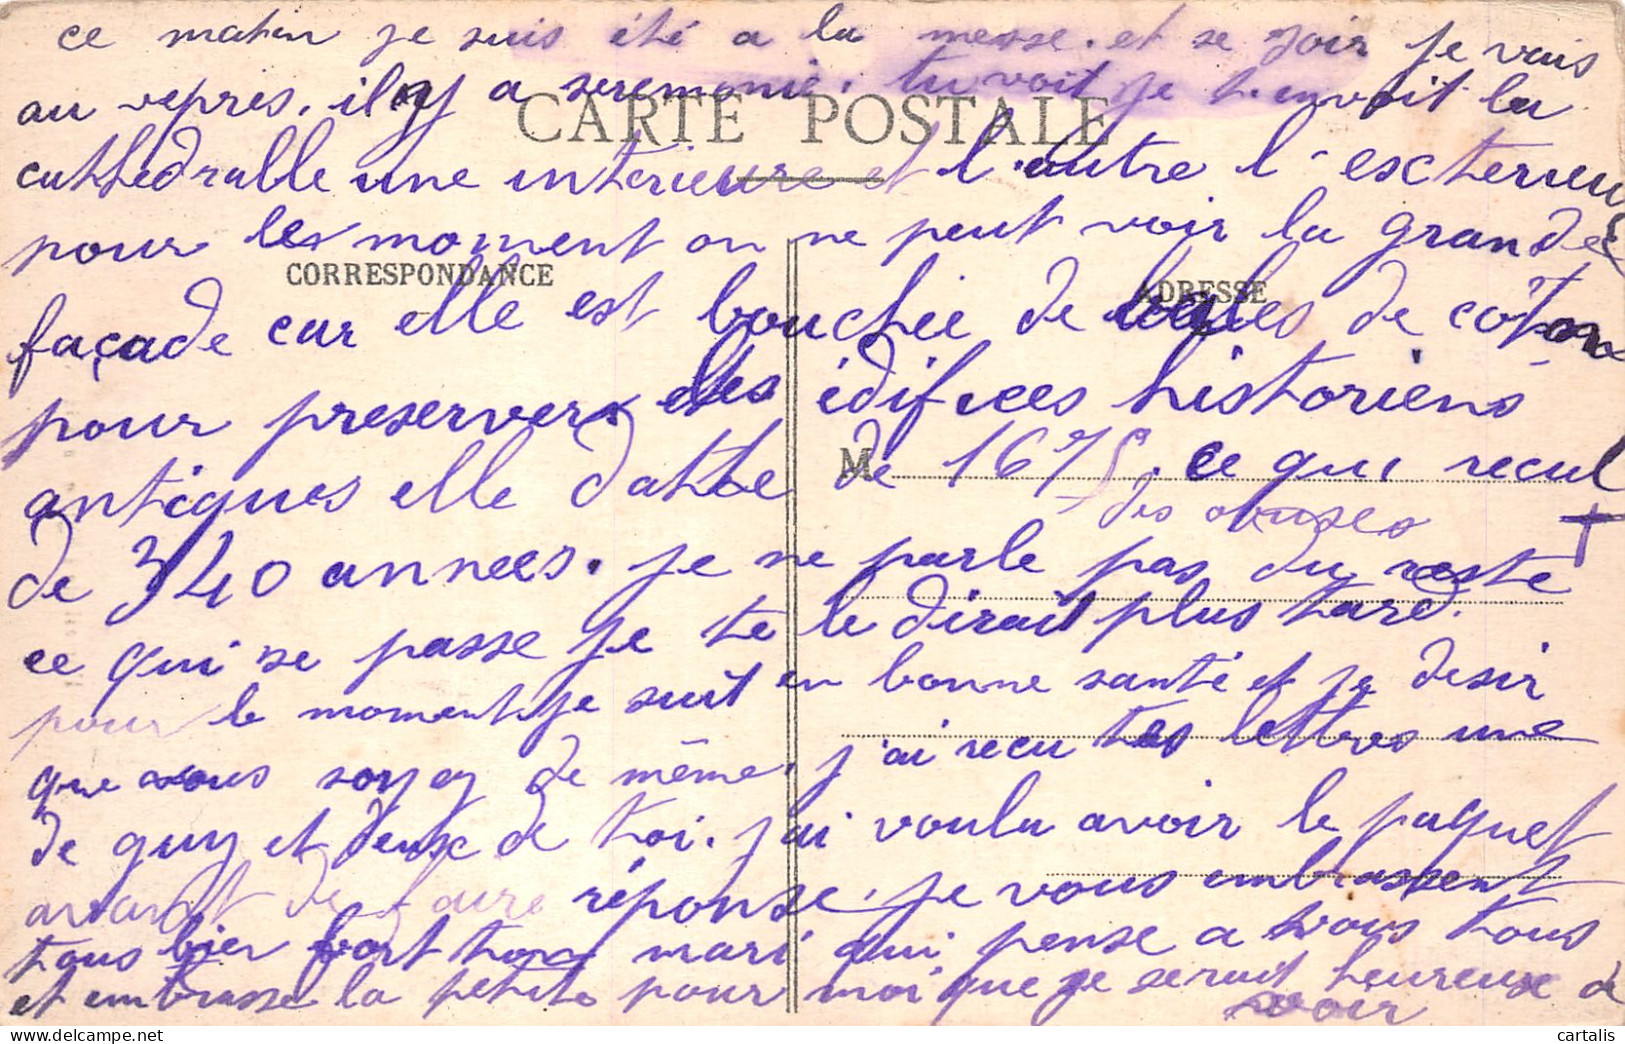 ce matin je suis été a la messe. et se soir je vais
au vepres. il y a seremonie. tu voit je t envoit la
CARTE POSTALE
cathedralle une interieure et l'autre l'excterieu
pour les moment on ne peut voir la grande
CORRESPONDANCE
ADRESSE
façade car elle est bouchée de balles de coton
pour preserver des édifices historiens
antiques elle datte de 1675. ce qui recul
M
des obuses
de 340 annees. je ne parle pas du reste
ce qui se passe je te le dirait plus tard.
pour le moment je suit en bonne santé et je desir
que vous soyez de même. j'ai recu tes lettres une
de guy et deux de toi. j'ai voulu avoir le paquet
avant de faire réponse. je vous embrassent
tous bien fort ton mari qui pense a vous tous
et embrasse la petite pour moi que je serait heureux de
voir
cartalis.com